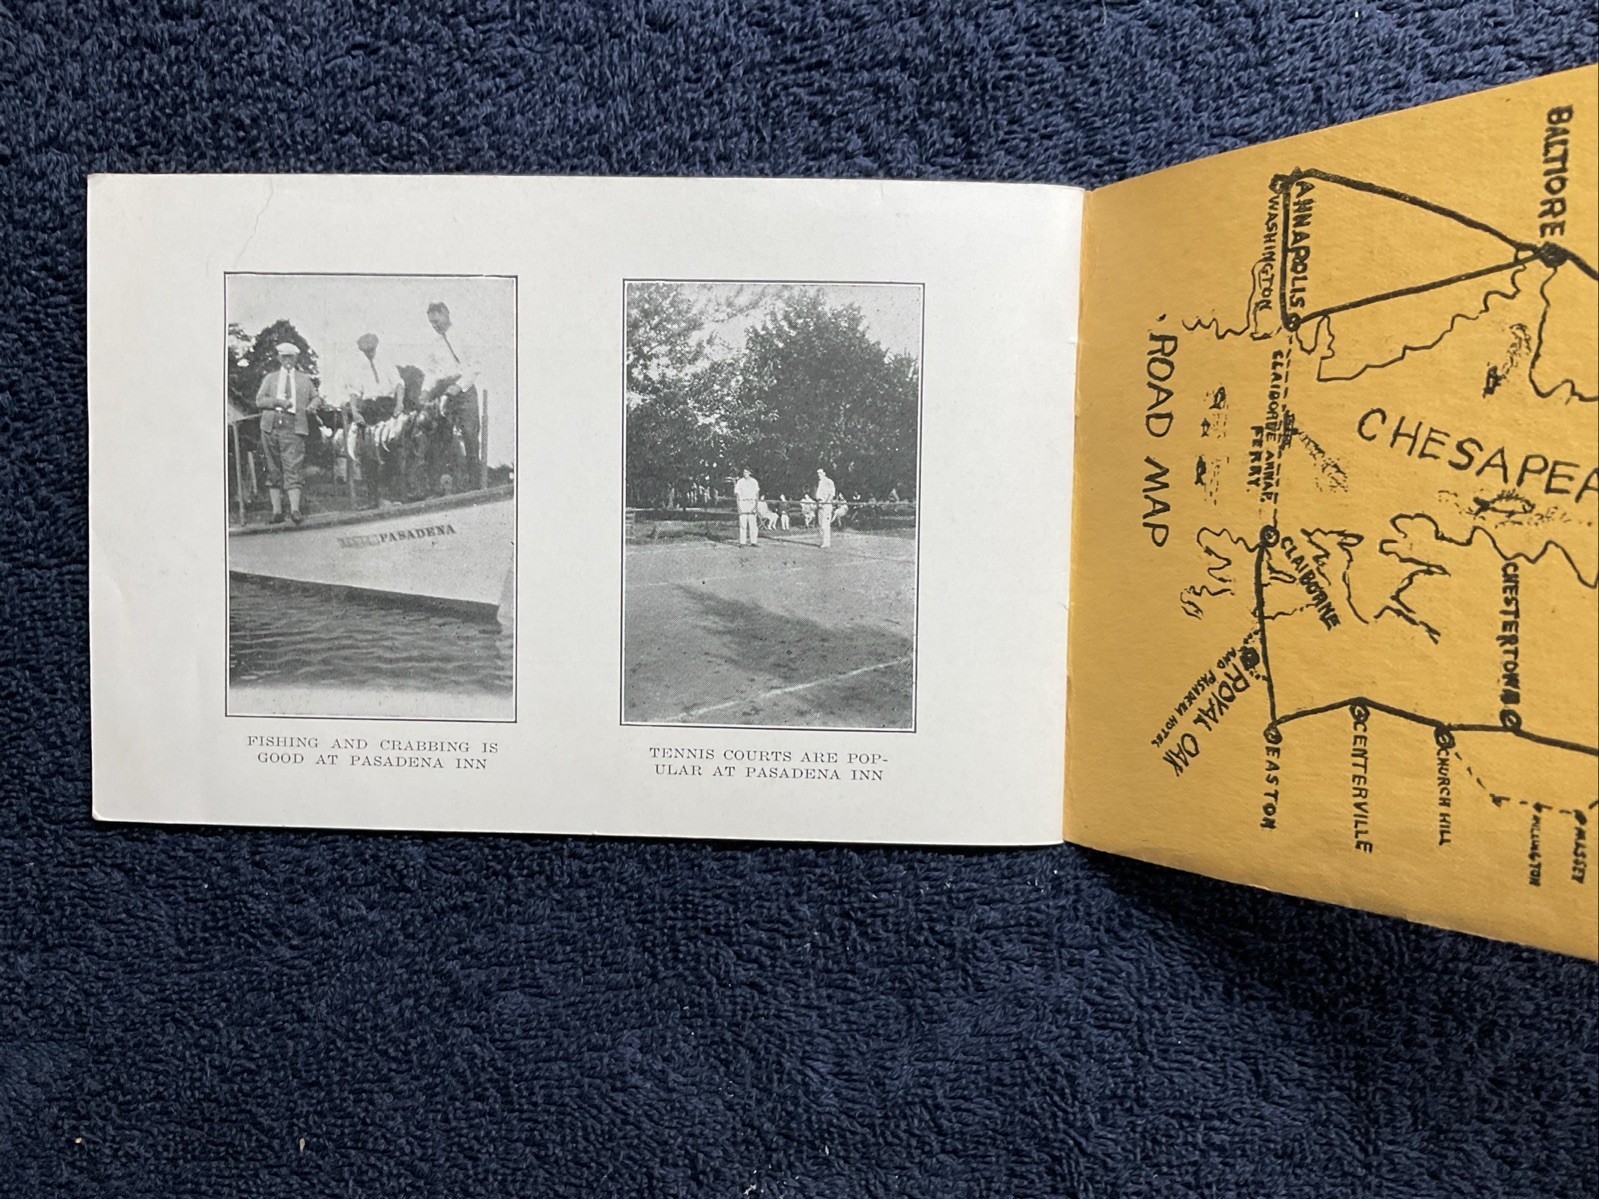 PASADENA
FISHING AND CRABBING IS
GOOD AT PASADENA INN
TENNIS COURTS ARE POP-
ULAR AT PASADENA INN
ROAD MAP
BALTIORE
ANNAPOLIS
WASHINGTON
CLAIBORNE ANNAP.
FERRY
CHESAPEA
CLAIBORNE
ROYAL OAK
AND PASADENA HOTEL
EASTON
CENTERVILLE
CHURCH HILL
CHESTERTOWN
MILLINGTON
MASSEY